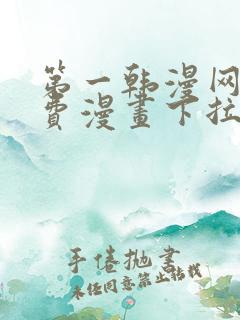 第一韩漫网
费漫畫下拉
手倦抛書
未经同意禁止转载